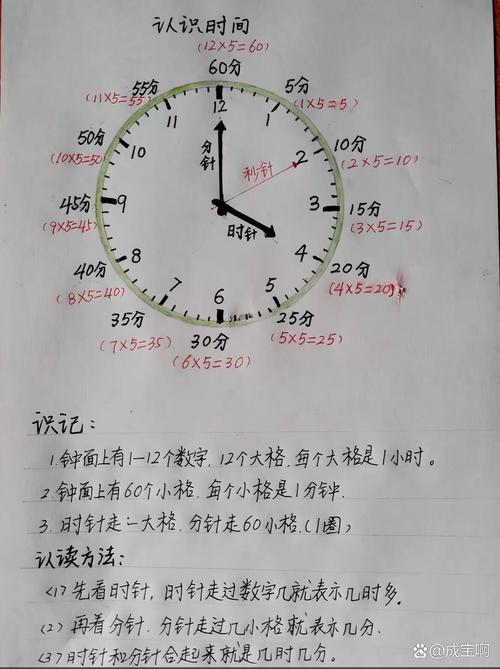 认识时间
(12×5=60)
60分
55分
(11×5=55)
5分
(1×5=5)
50分
(10×5=50)
10分
(2×5=10)
45分
(9×5=45)
15分
(3×5=15)
40分
(8×5=40)
20分
(4×5=20)
35分
(7×5=35)
25分
(5×5=25)
30分
(6×5=30)
12
1
2
3
4
5
6
7
8
9
10
11
分针
秒针
时针
识记:
1.钟面上有1—12个数字,12个大格,每个大格是1小时。
2.钟面上有60个小格,每个小格是1分钟.
3.时针走一大格,分针走60小格.(1圈)
认读方法:
<1>先看时针,时针走过数字几就表示几时多。
(2)再看分针.分针走过几小格就表示几分.
(3)时针和分针合起来就是几时几分。
@成宝啊